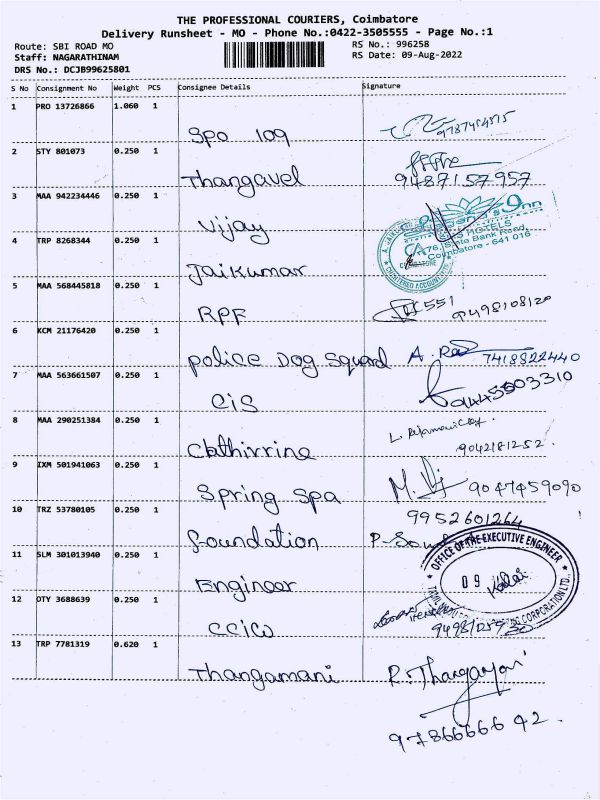 THE PROFESSIONAL COURIERS, Coimbatore
Delivery Runsheet - MO - Phone No.:0422-3505555 - Page No.:1
Route: SBI ROAD MO RS No.: 996258
Staff: NAGARATHINAM RS Date: 09-Aug-2022
DRS No.: DCJB99625801
S No Consignment No Weight PCS Consignee Details Signature
1 PRO 13726866 1.060 1
Spo 109
2 STY 801073 0.250 1
Thangavel 9487157957
3 MAA 942234446 0.250 1
Vijay
4 TRP 8268344 0.250 1
76, State Bank Road,
Coimbatore - 641 018
CHARTERED ACCOUNTANT
Jaikumar
5 MAA 568445818 0.250 1
RPF 551 9498108120
6 KCM 21176420 0.250 1
Police Dog Squad A. 7418822440
7 MAA 563661507 0.250 1
CIS 9445503310
8 MAA 290251384 0.250 1
Cathirrine 9042181252.
9 IXM 501941063 0.250 1
Spring Spa 9047459090
10 TRZ 53780105 0.250 1
9952601264
foundation
OFFICE OF THE EXECUTIVE ENGINEER
11 SLM 301013940 0.250 1
09
Engineer
12 OTY 3688639 0.250 1
CCICO
13 TRP 7781319 0.620 1
Thangamani R. Thangamani
9786666642.